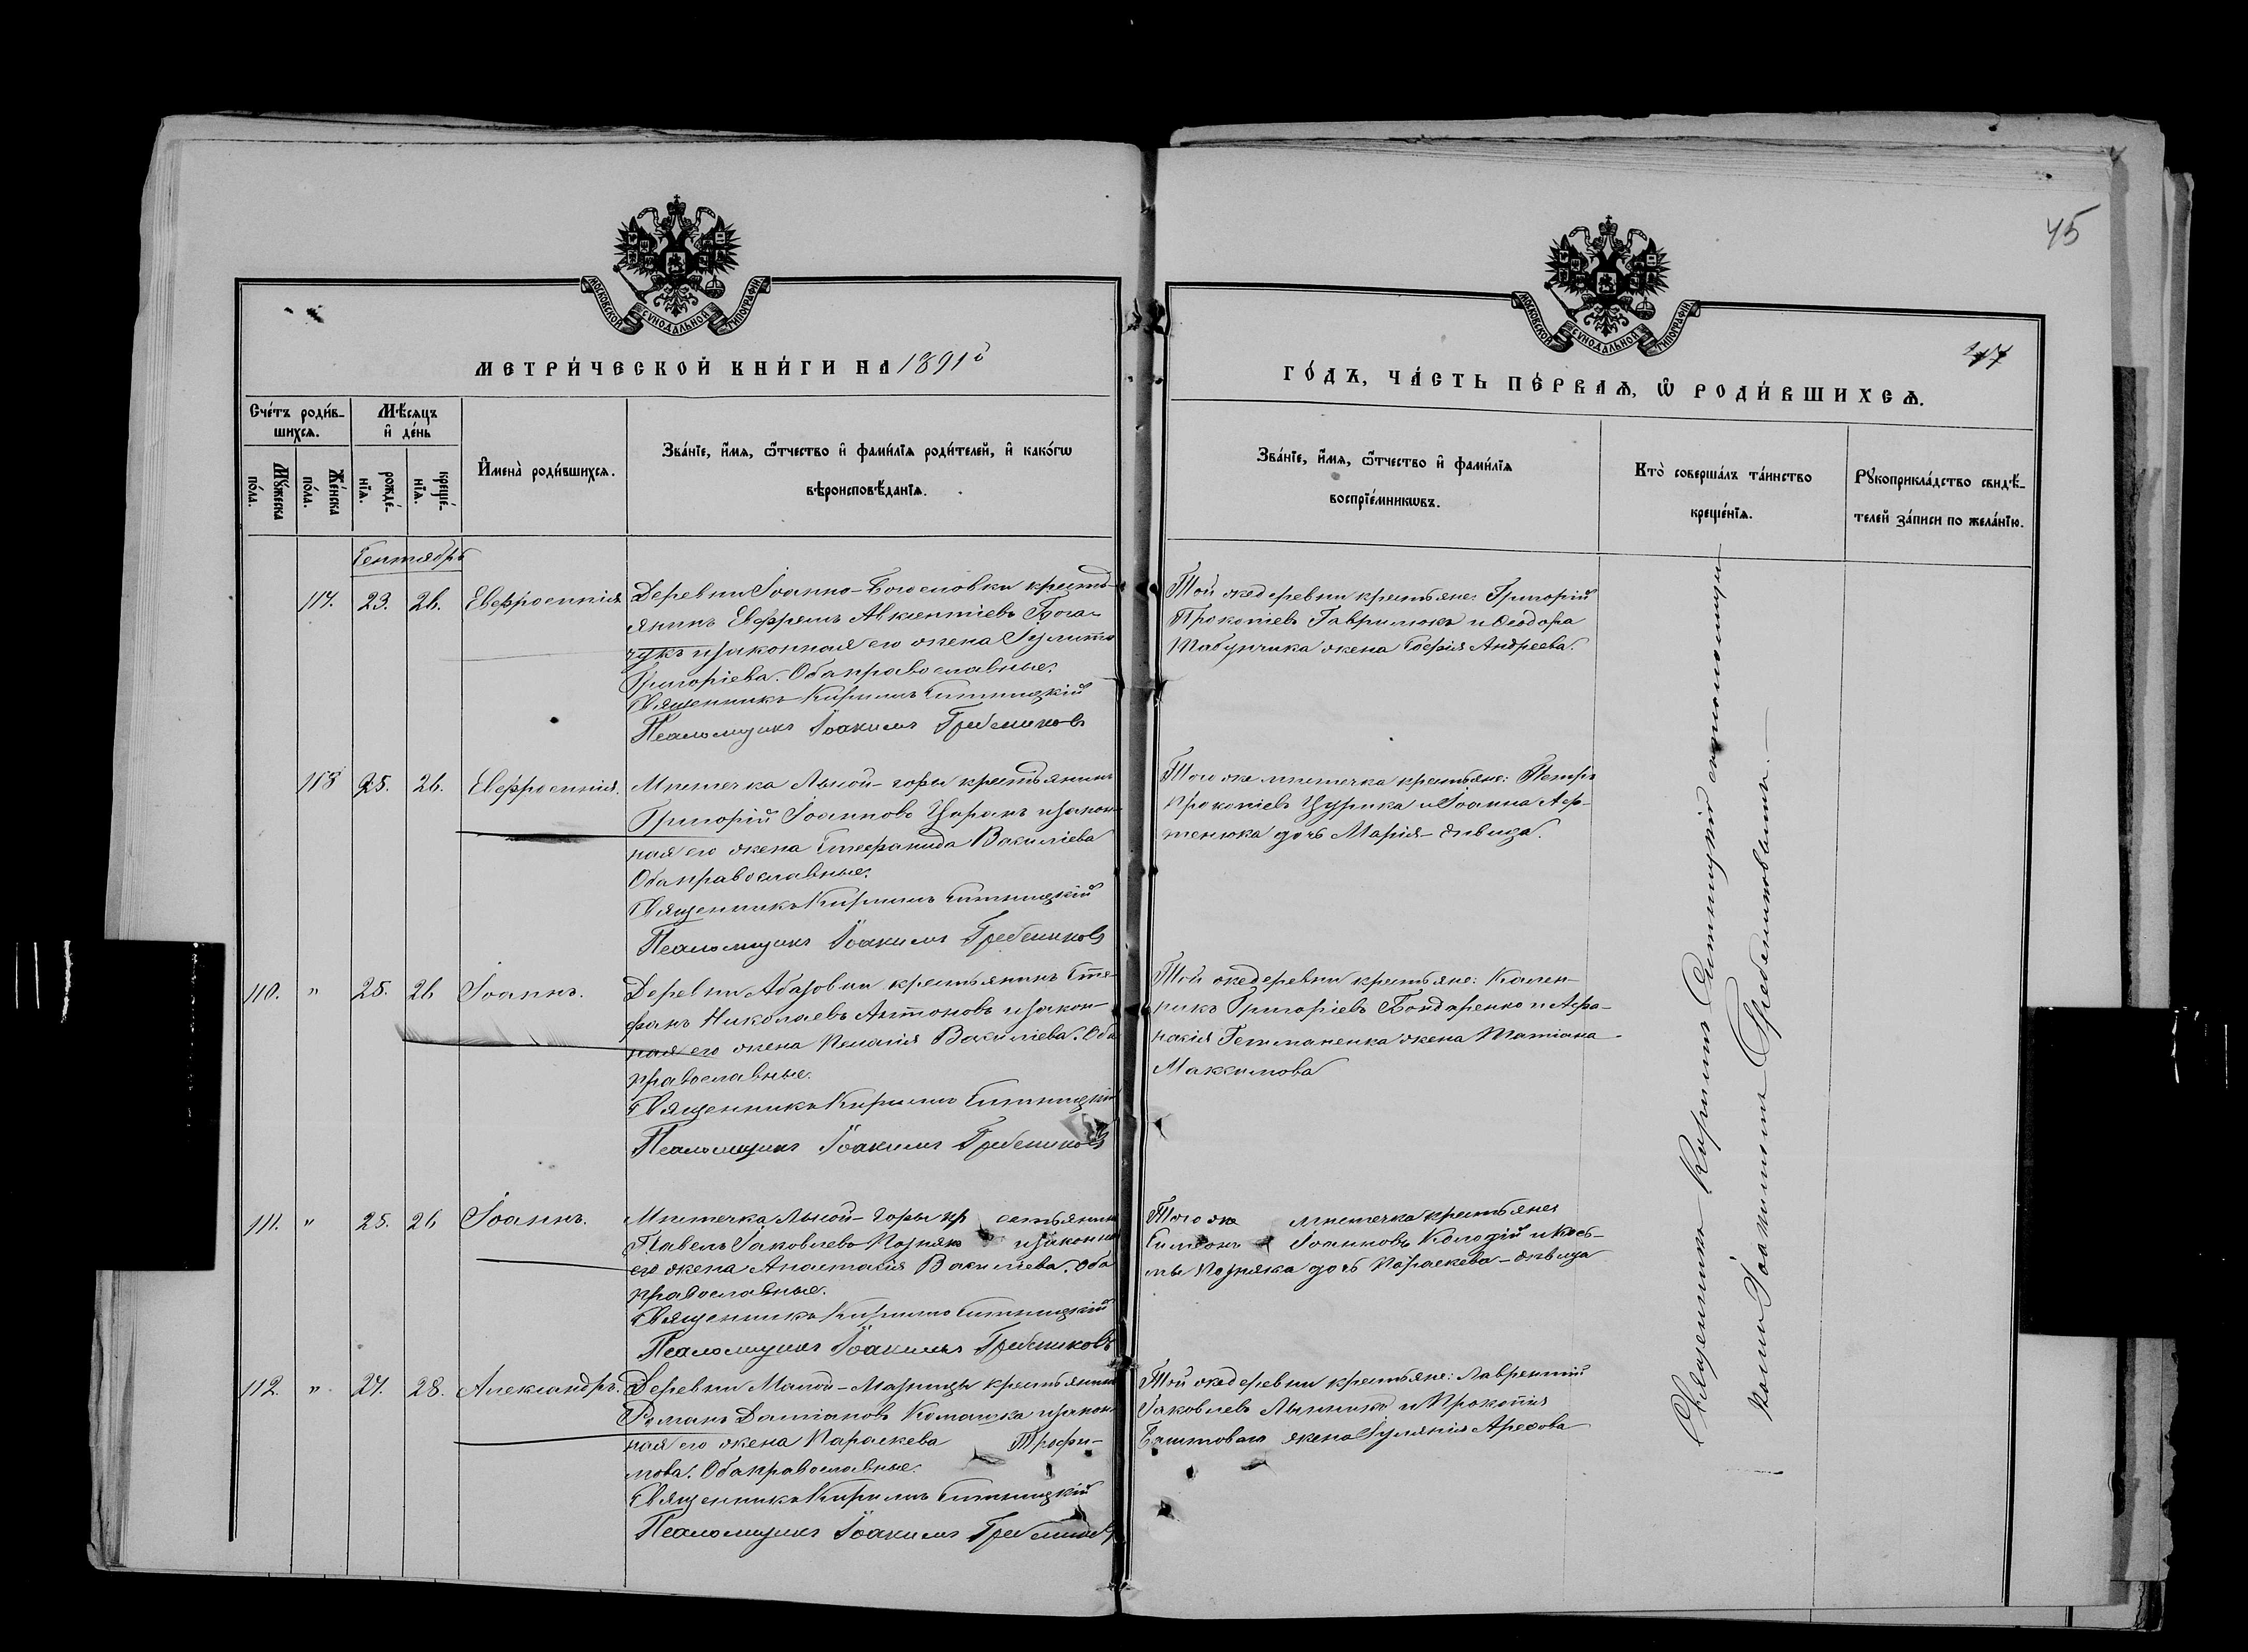 45
МОСКОВСКОЙ СУНОДАЛЬНОЙ ТИПОГРАФІИ.
МОСКОВСКОЙ СУНОДАЛЬНОЙ ТИПОГРАФІИ.
МЕТРИ́ЧЕСКОЙ КНИ́ГИ НА 1891й
ГО́ДЪ, ЧА́СТЬ ПЕ́РВАѦ, Ѡ РОДИ́ВШИХСѦ.
Сче́тъ роди́в-
шихсѧ.
Му́жеска по́ла.
Же́нска по́ла.
Мѣ́сяцъ и де́нь
рожде́-нїѧ.
креще́-нїѧ.
И҆мена̀ роди́вшихсѧ.
Зва́нїе, и҆́мѧ, ѻ҆́тчество и҆ фами́лїѧ роди́телей, и҆ како́гѡ
вѣроисповѣ́данїѧ.
Зва́нїе, и҆́мѧ, ѻ҆́тчество и҆ фами́лїѧ
воспрїе́мникѡвъ.
Кто̀ соверша́лъ та́инство
креще́нїѧ.
Рꙋкоприкла́дство свидѣ́-
телей за́писи по жела́нїю.
Сентябрь
117. 23. 26. Евфросинія
Деревни Іоанно-Богословки кресть-
янинъ Евфремъ Авксентіевъ Бога-
чукъ и законная его жена Іулитта
Григоріева. Оба православные.
Священникъ Кириллъ Ситницкій
Псаломщикъ Іоакимъ Гребениковъ
Той же деревни крестьяне: Григорій
Прокопіевъ Гаврилюкъ и Ѳеодора
Табунчика жена Софія Андреева.
118 25. 26. Евфросинія.
Мѣстечка Лысой-горы крестьянинъ
Григорій Іоанновъ Царанъ и закон-
ная его жена Стефанида Василіева
Оба православные.
Священникъ Кириллъ Ситницкій
Псаломщикъ Іоакимъ Гребениковъ
Того же мѣстечка крестьяне: Петръ
Прокопіевъ Цурика и Іоанна Арф-
тенюка дочь Марія-дѣвица.
110. " 25. 26 Іоаннъ.
Деревни Абазовки крестьянинъ Сте-
фанъ Николаевъ Антоновъ и закон-
ная его жена Пелагія Василіева. Оба
православные.
Священникъ Кириллъ Ситницкій
Псаломщикъ Іоакимъ Гребениковъ
Той же деревни крестьяне: Кален-
никъ Григоріевъ Бондаренко и Афа-
насія Гетманенка жена Татіана
Максимова
111. " 25. 26 Іоаннъ.
Мѣстечка Лысой-Горы крестьянинъ
Павелъ Іаковлевъ Позняк и законная
его жена Анастасія Василіева. Оба
православные.
Священникъ Кириллъ Ситницкій
Псаломщикъ Іоакимъ Гребениковъ
Того же мѣстечка крестьяне
Симеонъ Іоанновъ Колодій и Кось-
мы Позняка дочь Параскева-дѣвица
112. " 27. 28. Александръ.
Деревни Малой-Мазницы крестьянинъ
Романъ Даміановъ и закон-
ная его жена Параскева Трофи-
мова. Оба православные.
Священникъ Кириллъ Ситницкій
Псаломщикъ Іоакимъ Гребениковъ
Той же деревни крестьяне: Лаврентій
Іаковлевъ и Прокопія
Баштоваго жена Іуліанія Арефова
Священникъ Кириллъ Ситницкій съ псаломщи-
комъ Іоакимомъ Гребениковымъ.